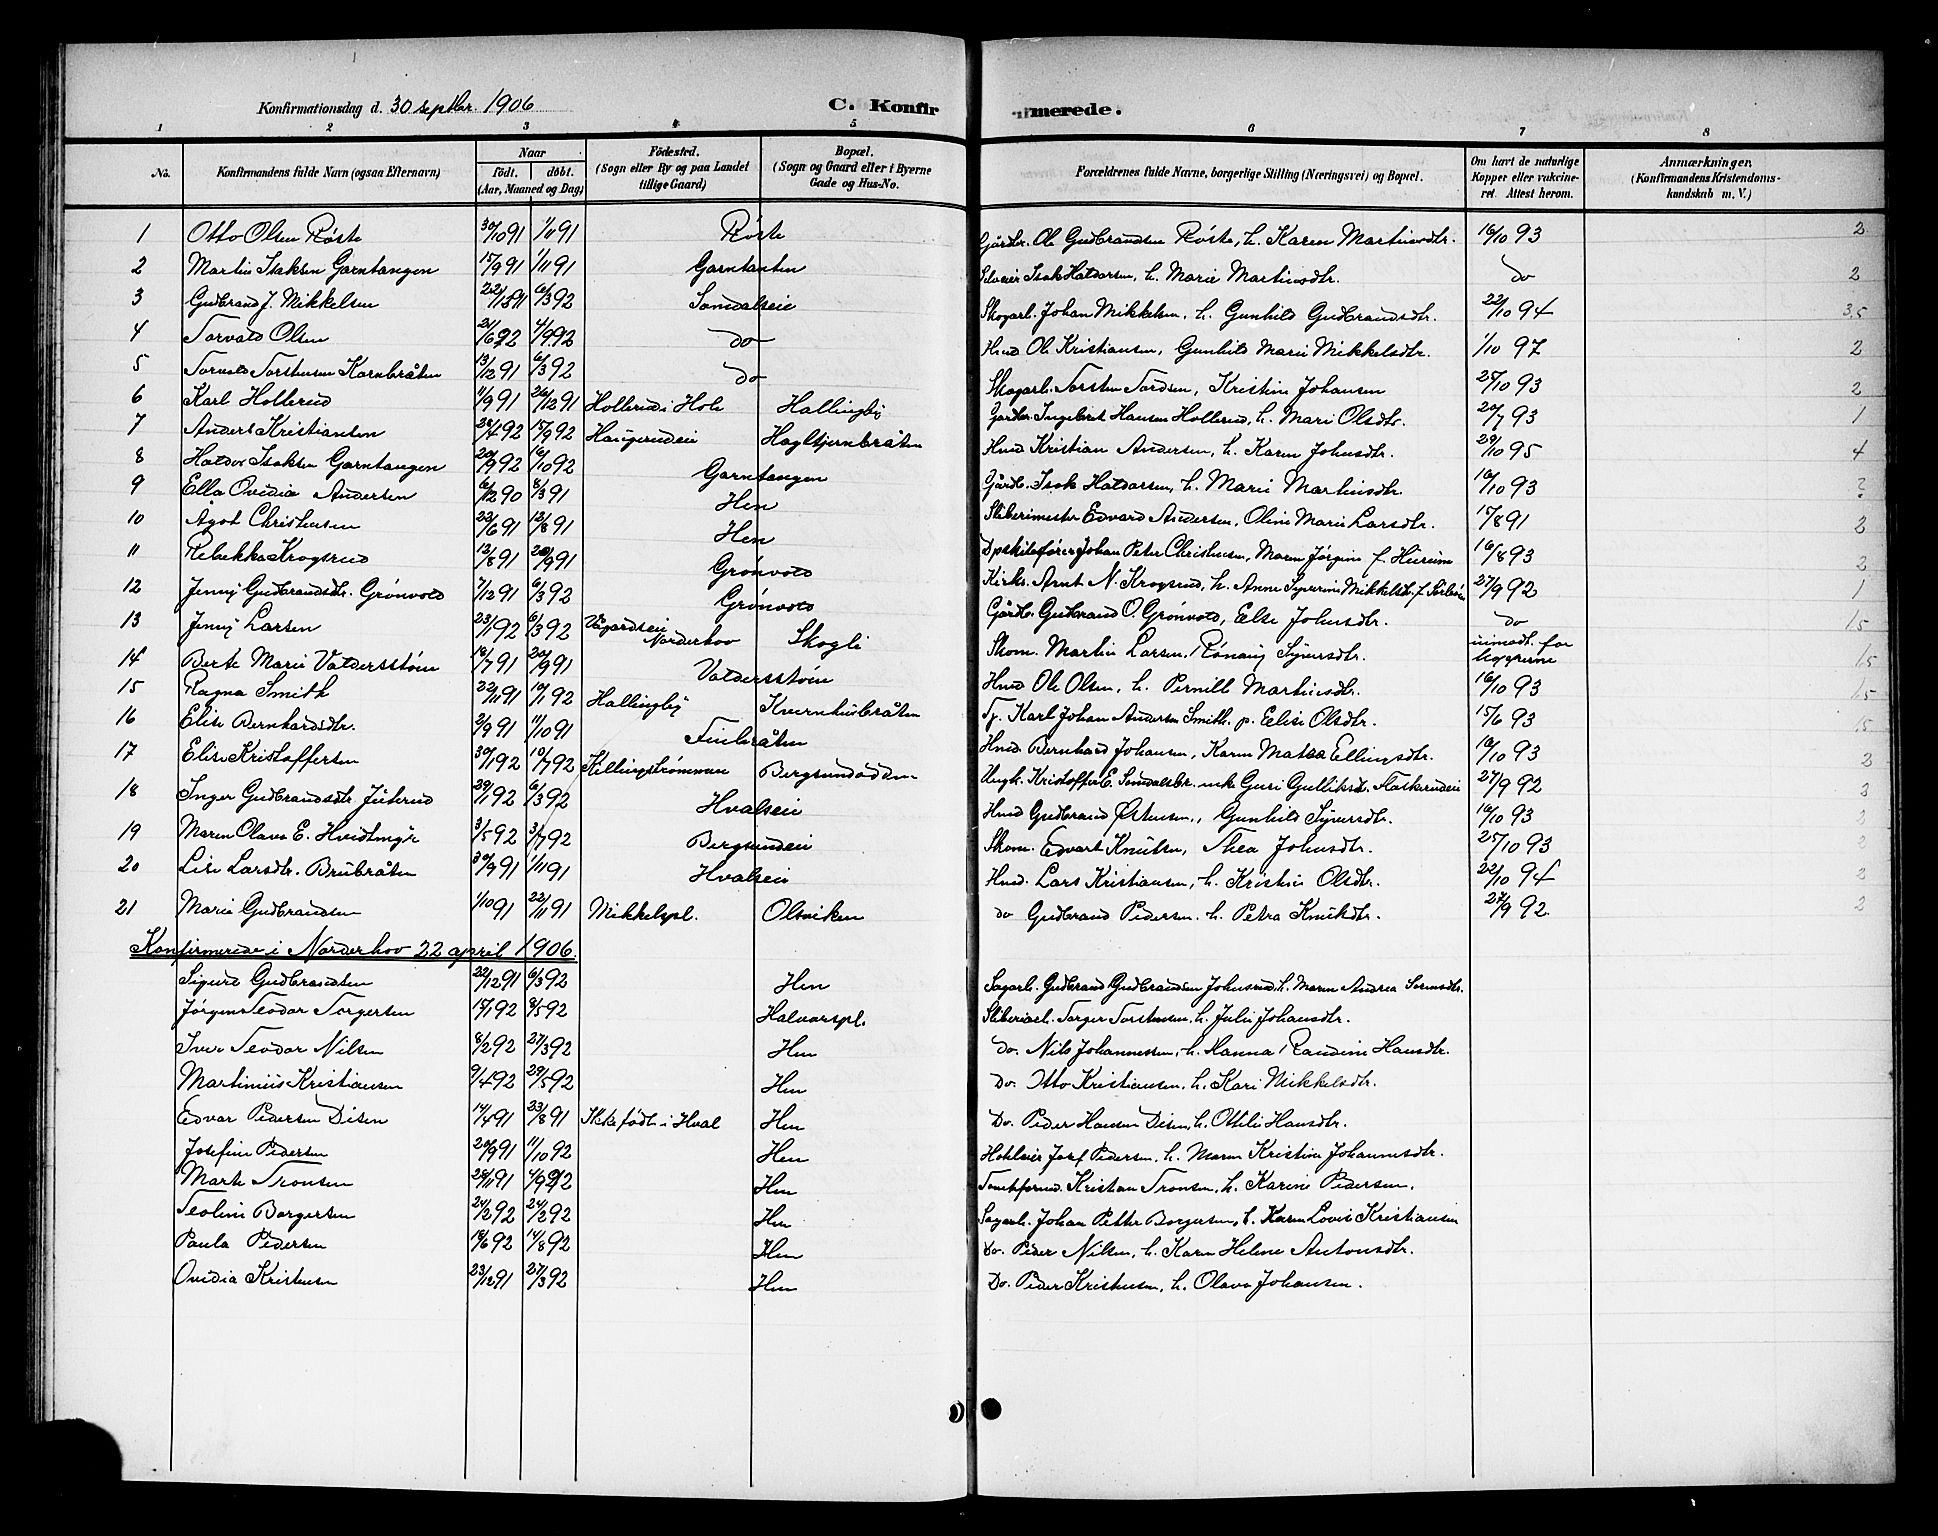 Konfirmationsdag d. 30 septbr. 1906 C. Konfirmerede.
1 2 3 4 5 6 7 8
No. Konfirmandens fulde Navn (ogsaa Efternavn) Naar födt. döbt. (Aar, Maaned og Dag) Födested. (Sogn eller By og paa Landet tillige Gaard) Bopæl. (Sogn og Gaard eller i Byerne Gade og Hus-No. Forældrenes fulde Navne, borgerlige Stilling (Næringsvei) og Bopæl. Om havt de naturlige Kopper eller vakcineret. Attest herom. Anmærkninger. (Konfirmandens Kristendomskundskab m. V.)
1 Otto Olsen Røste 30/10 91 1/11 91 Røste Gårdbr. Ole Gudbrandsen Røste, h. Karen Martinsdtr. 16/10 93 2
2 Martin Isaksen Garntangen 15/9 91 1/11 91 Garntanten Isak Haldorsen, h. Marie Martinsdtr. do 2
3 Gudbrand J. Mikkelsen 22/12 91 6/3 92 Somdalseie Skogarb. Johan Mikkelsen, h. Gunhild Gudbrandsdtr. 22/10 94 3,5
4 Torvald Olsen 21/6 92 4/9 92 do Hmd Ole Kristiansen, Gunhild Marie Mikkelsdtr. 1/10 97 2
5 Torvald Torstensen Kornbråten 13/12 91 6/3 92 do Skogarb. Torsten Tordsen, Kristine Johansen 25/10 93 2
6 Karl Hollerud 11/9 91 26/12 91 Hollerud i Hole Hallingby Gårdbr. Ingebret Hansen Hollerud, h. Mari Olsdtr. 20/7 93 1
7 Anders Kristiansen 28/4 92 15/9 92 Haugerudeie Hagltjernbråten Hmd Kristian Andersen, h. Karen Johnsdtr. 29/10 95 4
8 Haldor Isaksen Garntangen 20/9 92 16/10 92 Garntangen Gårdb. Isak Haldorsen, h. Marie Martinsdtr. 16/10 93 2
9 Ella Ovidia Andersen 6/12 90 8/3 91 Hen Sliberimester Edvard Andersen, Oline Marie Larsdtr. 17/8 91 2
10 Ågot Christensen 22/6 91 12/8 91 Hen Dpskibsfører Johan Peter Christensen, Maren Jørgine f. Hurum 16/8 93 2
11 Rebekka Krogsrud 12/8 91 20/9 91 Grønvold Kirks. Arnt N. Krogsrud, h. Anne Syverine Mikkelsdtr. f. 27/9 92 1
12 Jenny Gudbrandsdtr. Grønvold 7/12 91 6/3 92 Grønvold Gårdbr. Gudbrand O. Grønvold, Else Johnsdtr. do 1,5
13 Jenny Larsen 23/1 92 6/3 92 Vågårdseie Norderhov Skogli Skom. Martin Larsen, Rønnaug Syversdtr. uimodt. for kopperne 1,5
14 Berte Marie Valdersstøen 16/7 91 20/9 91 Valdersstøen Hmd Ole Olsen, h. Pernille Martinsdtr. 16/10 93 1,5
15 Ragna Smith 22/11 91 10/1 92 Hallingby Kvernhusbråten Tj. Karl Johan Andersen Smith. p. Elise Olsdtr. 15/6 93 1,5
16 Elise Bernhardsdtr. 2/9 91 11/10 91 Finbråten Hmd. Bernhard Johansen, Karen Matea Ellingsdtr. 16/10 93 2
17 Elise Kristoffersen 30/1 92 10/7 92 Killingstrømmen Bergsundodden Ungk. Kristoffer E. Somdalsbr. enke Guri Gulliksd. Flaskerudeie 27/9 92 3
18 Inger Gudbrandsdtr. Juterud 29/1 92 6/3 92 Hvalseie Hmd Gudbrand Østensen, Gunhild Syversdtr. 16/10 93 2
19 Maren Olava E. Hvidtmyr 3/5 92 3/7 92 Bergsundeie Skom. Edvart Knutsen, Thea Johnsdtr. 25/10 93 2
20 Lise Larsdtr. Brubråten 30/9 91 1/11 91 Hvalseie Hmd. Lars Kristiansen, h. Kristine Olsdtr. 22/10 94 2
21 Marie Gudbrandsen 1/10 91 22/11 91 Mikkelspl. Olsviken do Gudbrand Pedersen. h. Petra Knutsdtr. 27/9 92. 2
Konfirmerede i Norderhov 22 april 1906.
Sigurd Gudbrandsen 22/12 91 6/3 92 Hen Sagarb. Gudbrand Gudbrandsen Johnsrud, h. Maren Andrea Sørensdtr.
Jørgen Teodor Torgersen 15/1 92 8/5 92 Halvorspl. Sliberiarb. Torger Torstensen, h. Julie Johansdtr.
Iver Teodor Nilsen 8/2 92 27/3 92 Hen do. Nils Johannessen, h. Hanna Randine Hansdtr.
Martinius Kristiansen 9/4 92 29/5 92 Hen Do. Otto Kristiansen, h. Kari Mikkelsdtr.
Edvar Pedersen Disen 14/4 91 23/8 91 Ikke født i Hval Hen Do. Peder Hansen Disen, h. Ottilie Hansdtr.
Josefine Pedersen 20/9 91 11/10 92 Hen Josef Pedersen, h. Maren Kristine Johannesdtr.
Marte Tronsen 28/11 91 4/9 92 Hen Tomteformd. Kristian Tronsen, h. Karine Pedersen.
Teoline Borgersen 24/2 92 24/2 92 Hen Sagarb. Johan Petter Borgersen, h. Karen Lovise Kristiansen
Paula Pedersen 18/6 92 14/8 92 Hen Do. Peder Nilsen, h. Karen Helene Antonsdtr.
Ovidia Kristensen 23/12 91 27/3 92 Hen Do. Peder Kristensen, h. Olava Johansen.